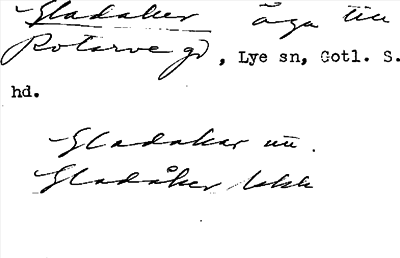 Gladaker äga till
Rotarve gd, Lye sn, Gotl. S.
hd.
Gladakar uu.
Gladåker lokk